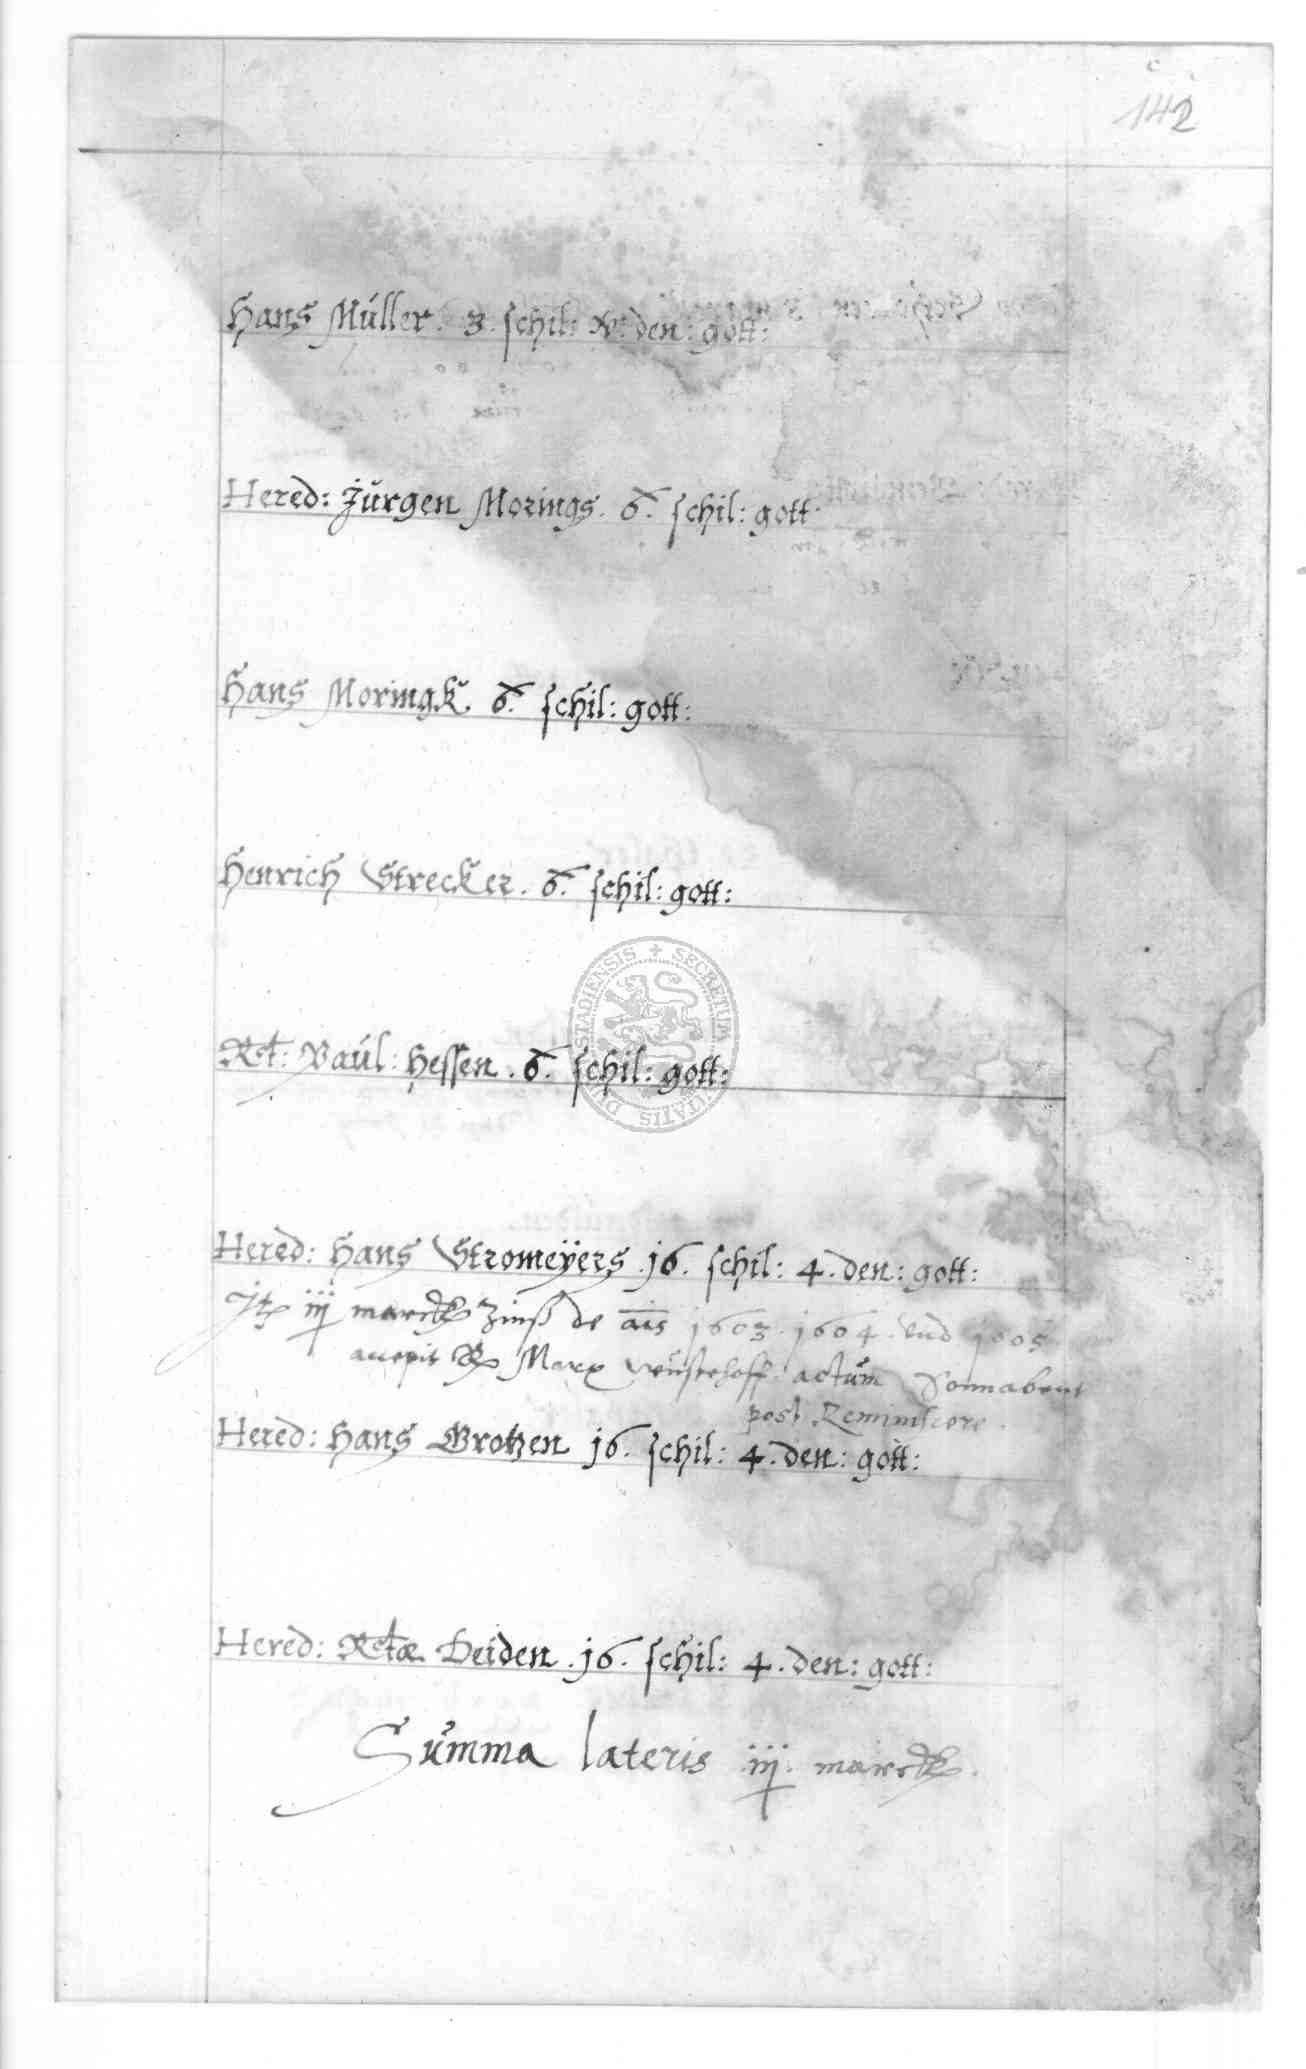 142
Hans Müller. 3. schil: v. den: gott:
Hered: Jürgen Morings. 6. schil: gott:
Hans Moringk. 6. schil: gott:
Henrich Strecker. 6. schil: gott:
Rct: Paul: Hessen. 6. schil: gott:
Hered: Hans Stromeÿers. j6. schil: 4. den: gott:
It iij marck Zinß de ais 1603. 1604. vnd 1605
accepit Marx Wüstehoff actum Sonnabent
post Reminiscere.
Hered: Hans Grotzen j6. schil: 4. den: gott:
Hered: Rctæ Deiden. j6. schil: 4. den: gott:
Summa lateris iij. marck.
SECRETUM
STADIENSIS